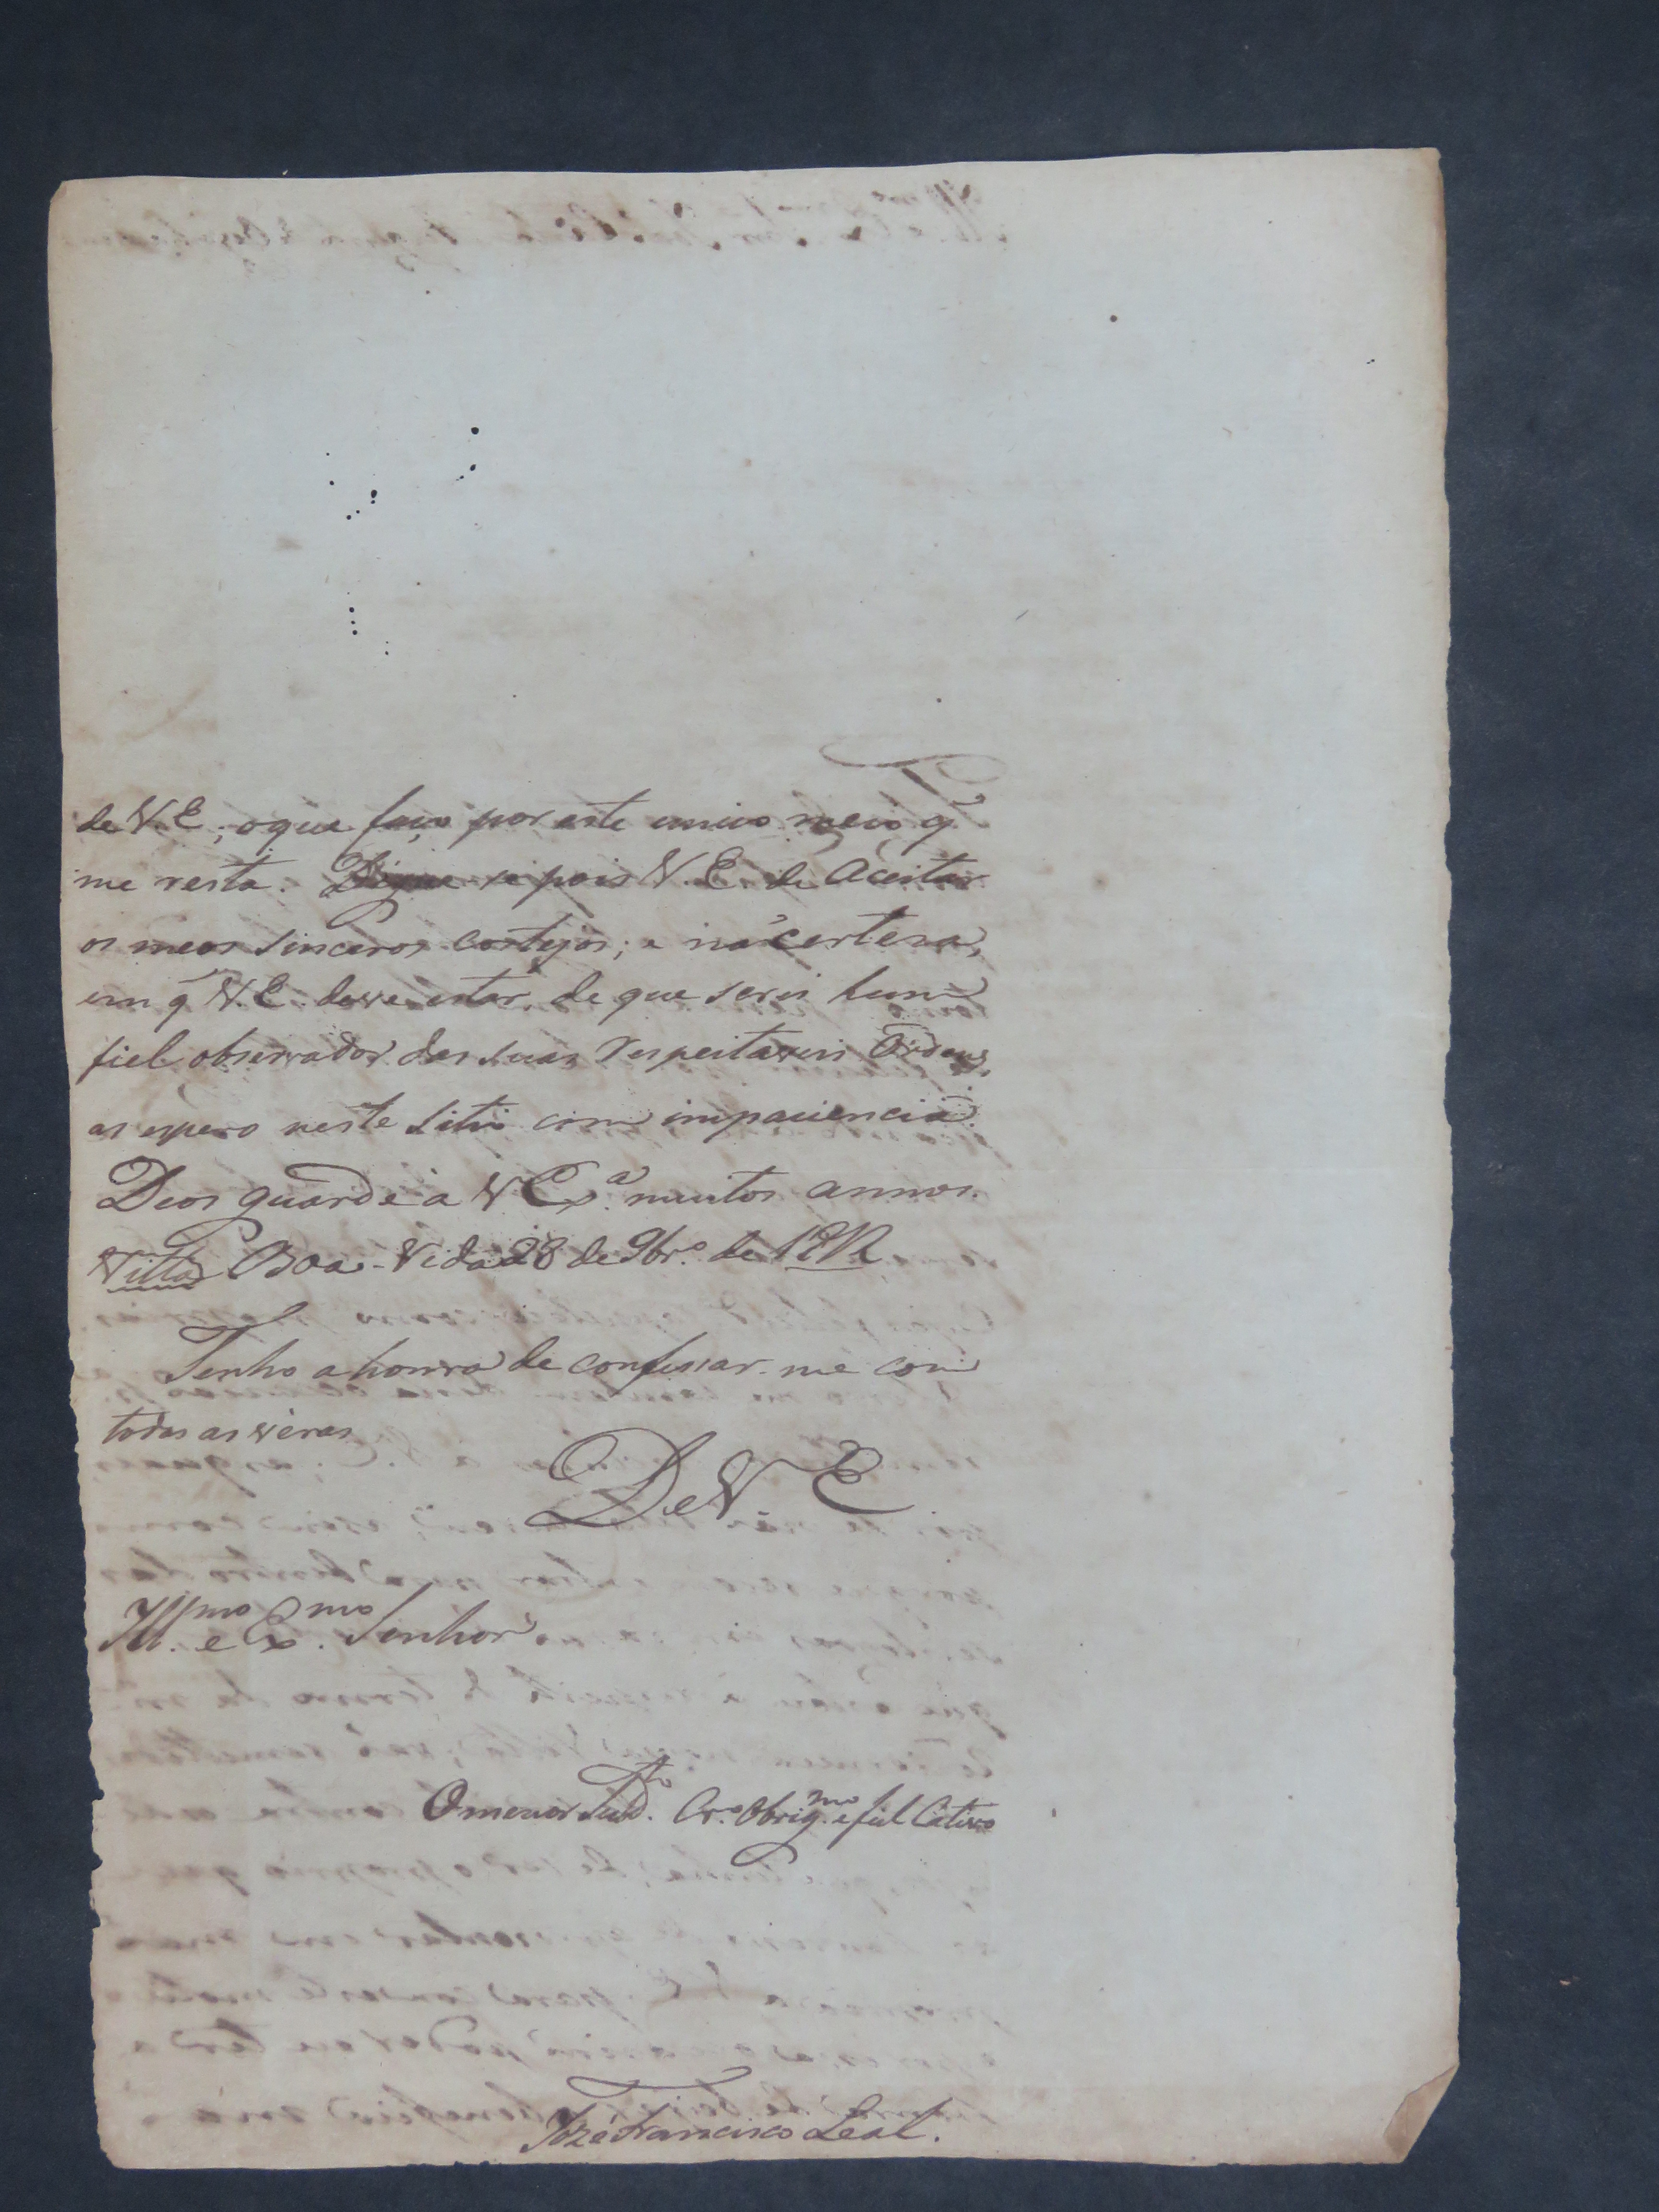 de V. E.; o que faço por este unico meio q̃
me resta. Digne-se pois V. E. de Aceitar
os meos sinceros cortejos; e na certesa,
em q̃ V. E. deve estar, de que serei hum
fiel observador das suas respeitaveis Ordens,
as espero neste Sitio com impaciencia.
Deos guarde a V Exª. muitos annos.
Villa Boa-Vida 28 de 9brº. de
Tenho a honra de confessar-me com
todas as véras
De V. E
Illmo. e Exmo. Senhor
O menor Subdto. Crº. Obrigmo. e fiel Cativo
Jozé Francisco Leal.